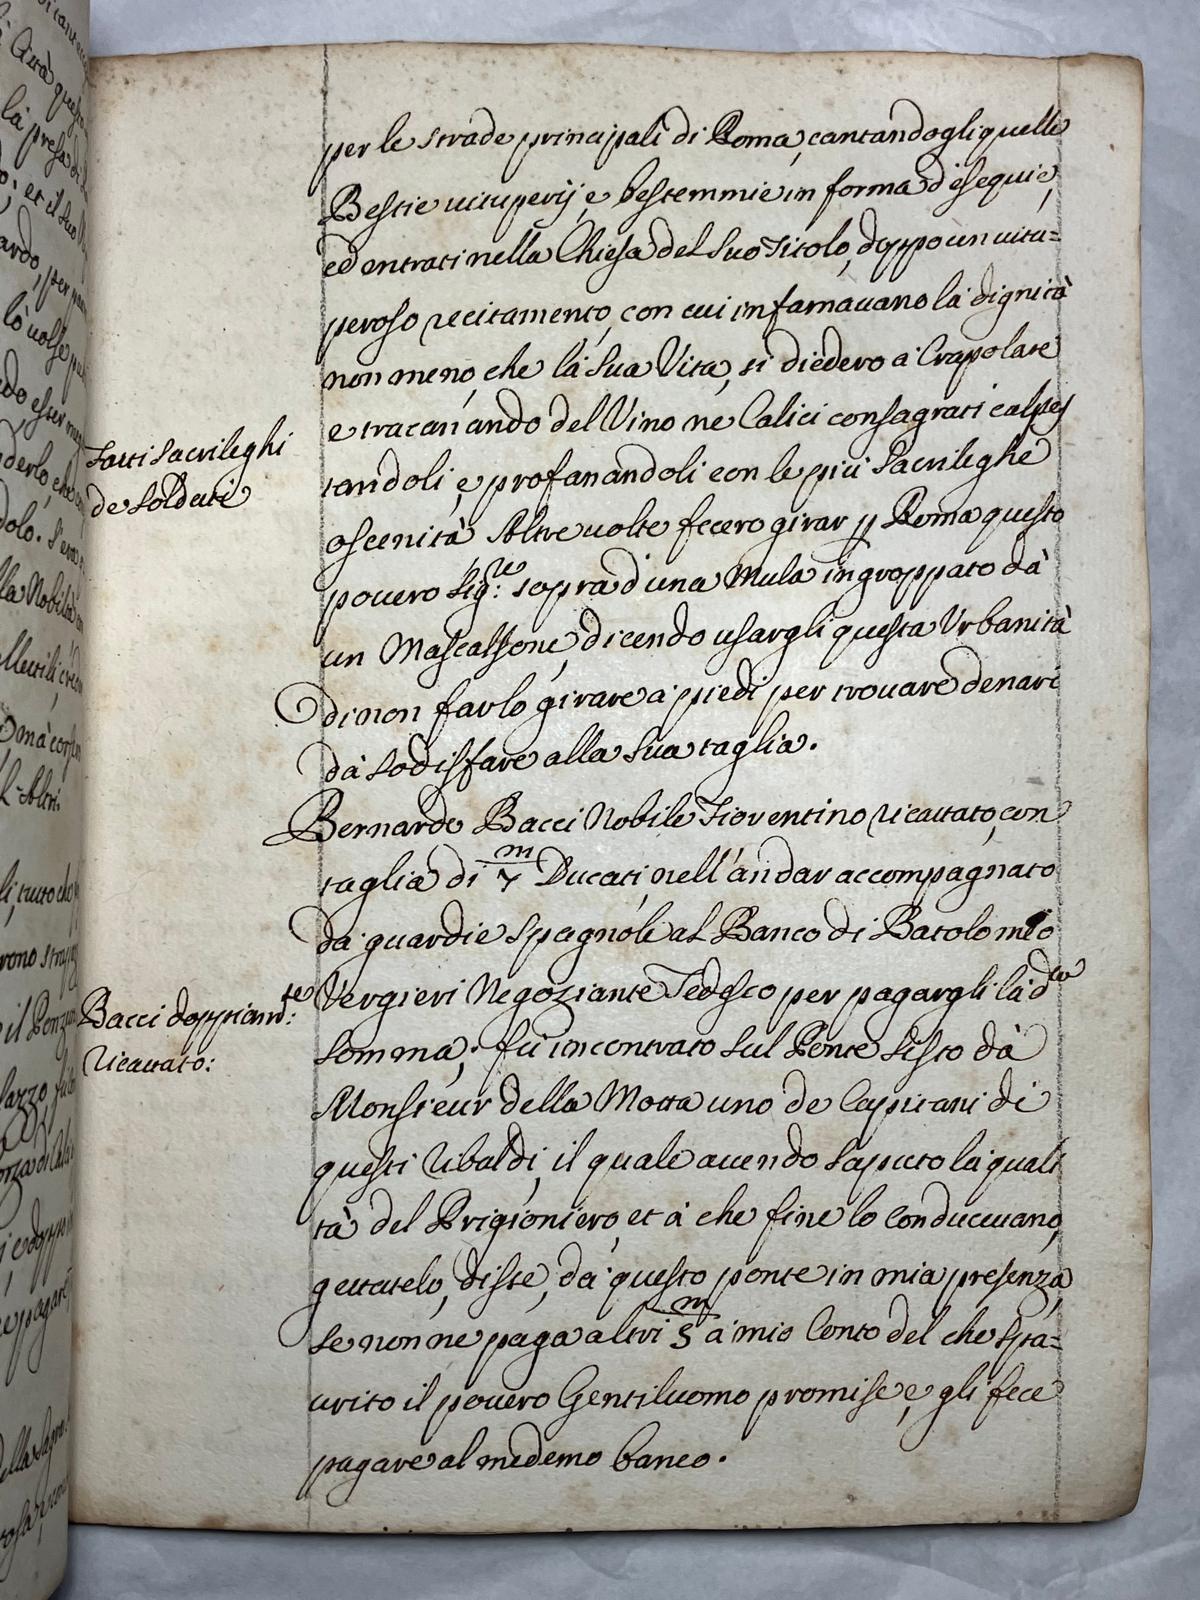 per le strade principali di Roma, cantandogli quelle
Bestie vituperij, e bestemmie in forma d'esequie,
ed entrati nella Chiesa del suo Titolo, doppo un vitu=
peroso recitamento, con cui infamavano la dignità
non meno, che la sua Vita, si diedero a Crapolare
e tracanando del Vino ne Calici consagrati calpes
tandoli, e profanandoli con le più Sacrileghe
oscenità Altre volte fecero girar p Roma questo
povero Sig.re sopra d'una Mula ingroppato da
un Mascalsone, dicendo usargli questa Urbanità
di non farlo girare a piedi per trovare denari
da sodisfare alla sua taglia.
Fatti Sacrileghi
de Soldati
Bernardo Bacci Nobile Fiorentino ricattato, con
taglia di 7 m Ducati, nell'andar accompagnato
da guardie Spagnole al Banco di Batolomeo
Vergieri Negoziante Tedesco per pagargli la d.ta
somma, fù incontrato sul Ponte Sisto da
Monsieur della Motta uno de Capitani di
questi ribaldi, il quale avendo saputo la quali
tà del Prigioniero, et a che fine lo conducevano,
gettatelo, disse, da questo ponte in mia presenza,
se non ne paga altri 5 m a mio Conto del che spa=
urito il povero Gentiluomo promise, e gli fece
pagare al medemo banco.
Bacci doppiam.te
ricattato: